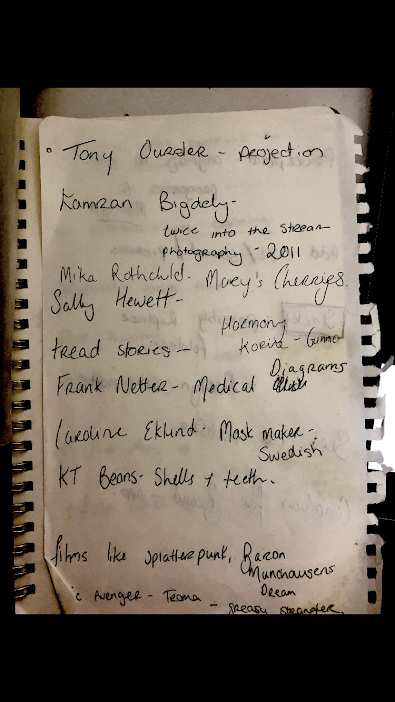 Tony Oursler - projection
Kamran Bigdely -
twice into the stream
photography - 2011
Mika Rothchild - Marey's Cherries.
Sally Hewett -
Harmony
Korine - Gummo
tread stories -
Diagrams
Frank Netter - Medical
Caroline Eklund - Mask maker -
Swedish
KT Beans - Shells + teeth.
films like splatterpunk, Baron
Munchausens
Dream
c Avenger - Troma - greasy strangler